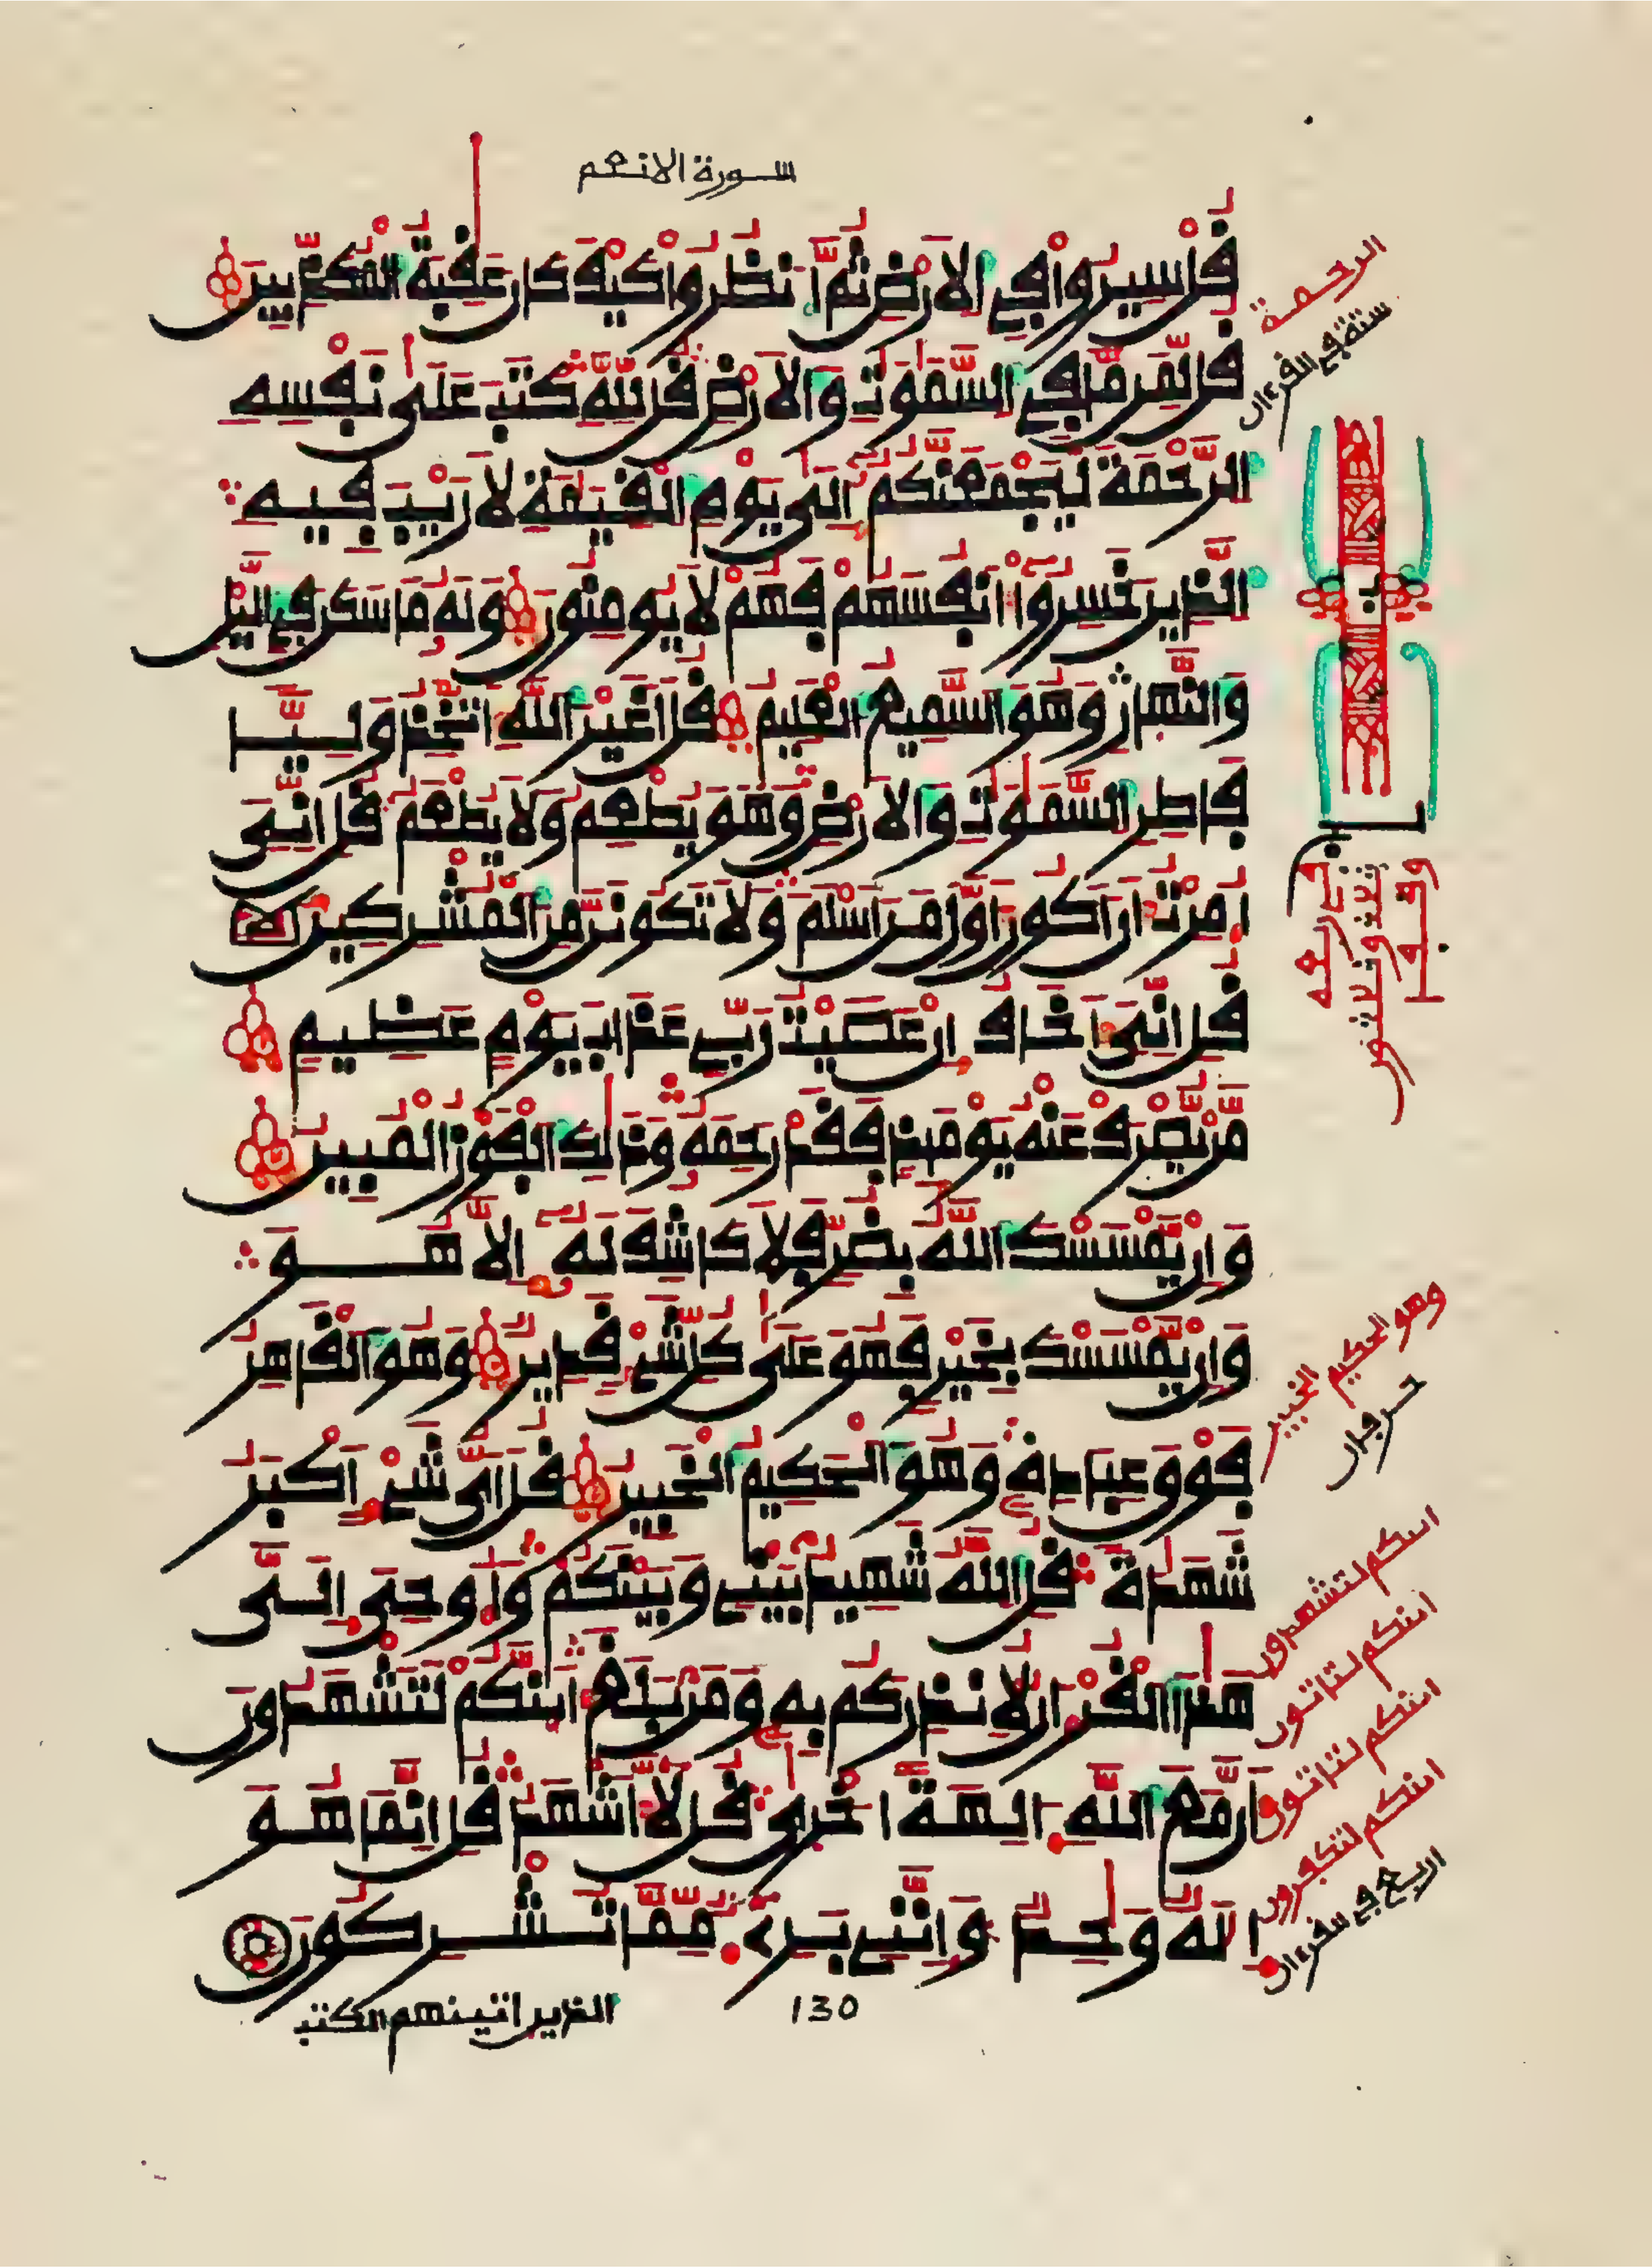 سورة الانعم
قُلْ سِيرُوا۟ فِي الَارْضِ ثُمَّ انظُرُوا۟ كَيْفَ كَانَ عَٰقِبَةُ الْمُكَذِّبِينَ
قُل لِّمَن مَّا فِي السَّمَٰوَٰتِ وَالَارْضِ قُل لِّلهِ كَتَبَ عَلَىٰ نَفْسِهِ
الرَّحْمَةَ لَيَجْمَعَنَّكُمُ إِلَىٰ يَوْمِ الْقِيَٰمَةِ لَا رَيْبَ فِيهِ
الَّذِينَ خَسِرُوا۟ أَنفُسَهُمْ فَهُمْ لَا يُومِنُونَ وَلَهُ مَا سَكَنَ فِي الَّيْلِ
وَالنَّهَارِ وَهُوَ السَّمِيعُ الْعَلِيمُ قُلَ اَغَيْرَ اللَّهِ أَتَّخِذُ وَلِيّا
فَاطِرِ السَّمَٰوَٰتِ وَالَارْضِ وَهُوَ يُطْعِمُ وَلَا يُطْعَمُ قُلِ انِّيَ
أُمِرْتُ أَنَ اَكُونَ أَوَّلَ مَنَ اَسْلَمَ وَلَا تَكُونَنَّ مِنَ الْمُشْرِكِينَ
قُلِ انِّيَ أَخَافُ إِنْ عَصَيْتُ رَبِّي عَذَابَ يَوْمٍ عَظِيمٍ
مَّنْ يُّصْرَفْ عَنْهُ يَوْمَئِذٍ فَقَدْ رَحِمَهُ وَذَٰلِكَ الْفَوْزُ الْمُبِينُ
وَإِنْ يَّمْسَسْكَ اللَّهُ بِضُرٍّ فَلَا كَاشِفَ لَهُ إِلَّا هُوَ
وَإِنْ يَّمْسَسْكَ بِخَيْرٍ فَهُوَ عَلَىٰ كُلِّ شَيْءٍ قَدِيرٌ وَهُوَ الْقَاهِرُ
فَوْقَ عِبَادِهِ وَهُوَ الْحَكِيمُ الْخَبِيرُ قُلَ اَيُّ شَيْءٍ أَكْبَرُ
شَهَٰدَةً قُلِ اللَّهُ شَهِيدٌ بَيْنِي وَبَيْنَكُمْ وَأُوحِيَ إِلَيَّ
هَٰذَا الْقُرْءَانُ لِأُنذِرَكُم بِهِ وَمَنْ بَلَغَ أَئِنَّكُمْ لَتَشْهَدُونَ
أَنَّ مَعَ اللَّهِ ءَالِهَةً أُخْرَىٰ قُل لَّا أَشْهَدُ قُلِ انَّمَا هُوَ
إِلَٰهٌ وَٰحِدٌ وَإِنَّنِي بَرِيءٌ مِّمَّا تُشْرِكُونَ
130
الذين اتينهم الكتب
الرحمة
ستة في القرءان
وهو الحكيم الخبير
حرفان
ائنكم لتشهدون
ائنكم لتاتون
ائنكم لتاتون
ائنكم لتكفرون
اربع في القرءان